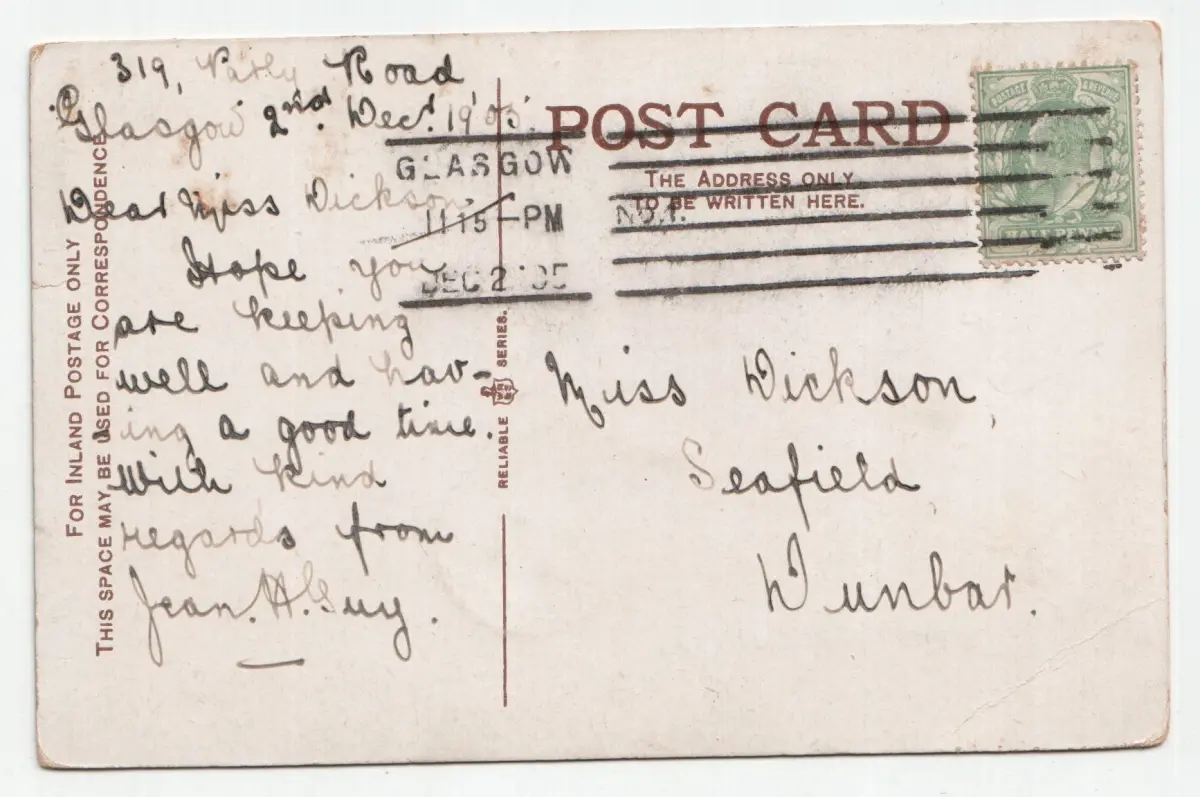 319, Parly Road
Glasgow 2nd. Dec. 1905.
Dear Miss Dickson.
Hope you
are keeping
well and hav-
ing a good time.
With kind
regards from
Jean. H. Guy.
FOR INLAND POSTAGE ONLY
THIS SPACE MAY BE USED FOR CORRESPONDENCE
RELIABLE SERIES.
POST CARD
THE ADDRESS ONLY
TO BE WRITTEN HERE.
GLASGOW
11 15 - PM
DEC 2 '05
NO.1.
POSTAGE REVENUE
HALF PENNY
Miss Dickson,
Seafield
Dunbar.